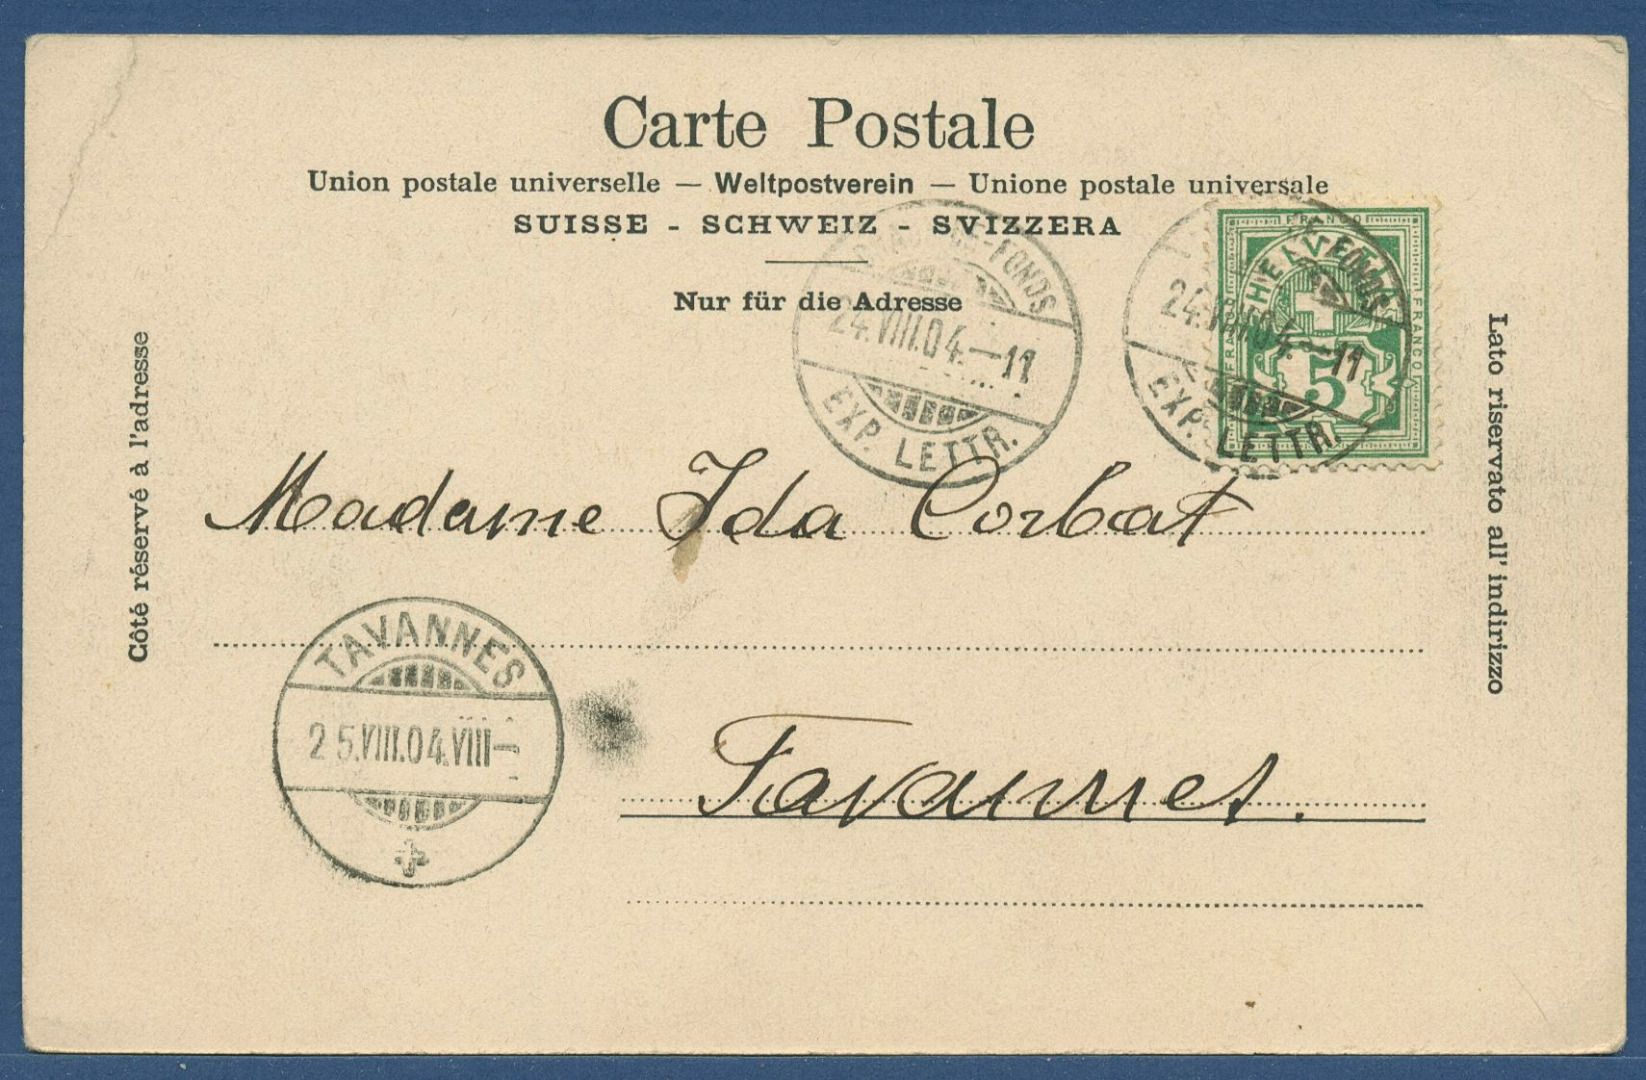 Carte Postale
Union postale universelle — Weltpostverein — Unione postale universale
SUISSE - SCHWEIZ - SVIZZERA
Nur für die Adresse
Côté réservé à l'adresse
Lato riservato all' indirizzo
-FONDS
24.VIII.04.—11
EXP. LETTR.
FONDS
24.VIII.04.—11
EXP. LETTR.
FRANCO
FRANCO
FRANCO
HELVETIA
5
Madame Ida Corbat
Tavannes.
TAVANNES
25.VIII.04.VIII—